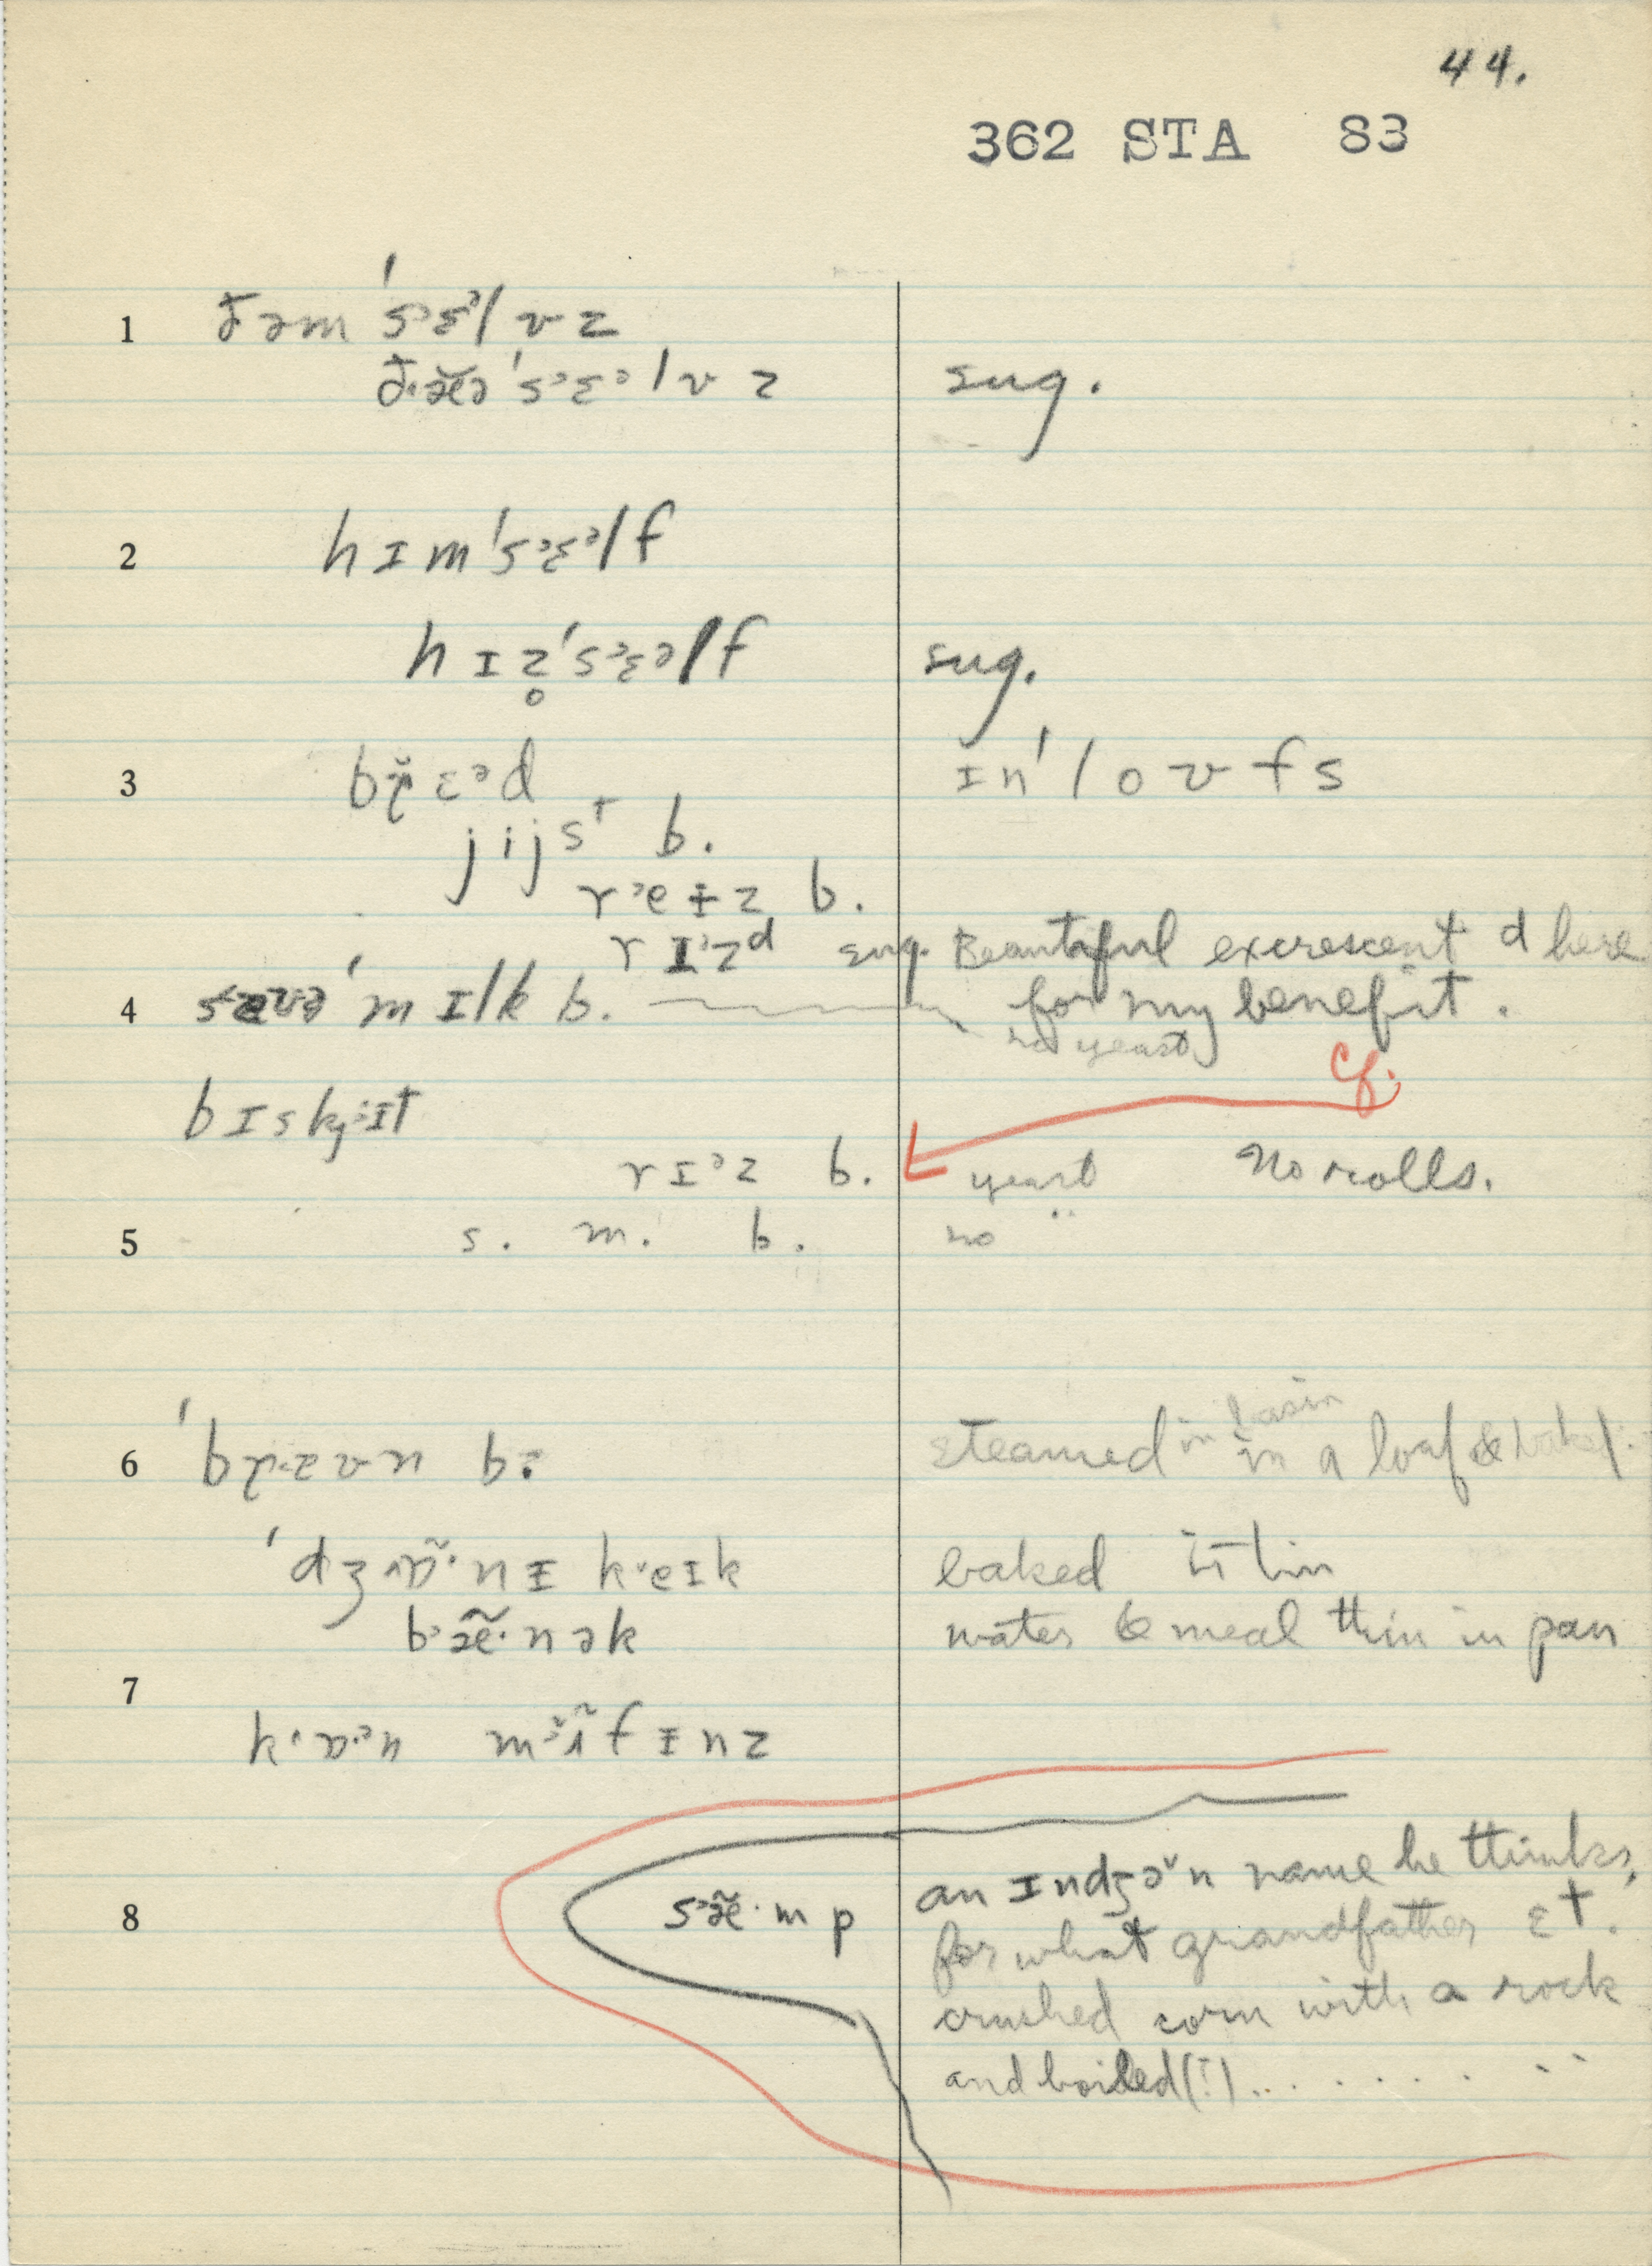 44.
362 STA 83
1 ðəm 's᾽ɛᵊlvz
ð·æ̆ə 's᾽ɛᵊlvz sug.
2 hɪm 's᾽ɛᵊlf
hɪz̥ 's᾽ɛəlf sug.
3 ɛᵊd ɪn 'lovfs
jijsᵗ b.
r᾽eɨz b.
rɪ᾽zᵈ sug. Beautiful excrescent d here
4 'mɪlk b. for my benefit.
no yeast
cf.
bɪskɪt
rɪᵊz b. yeast No rolls.
5 s. m. b. no "
6 b: steamed in basin in a loaf & baked.
'dʒ nɪ k eɪk baked thin
b·æ̃·nək water & meal thin in pan
7
k·ɒ·ᵊn m fɪnz
8 s᾽æ̃·mp an ɪndʒə̆n name he thinks,
for what grandfather ɛt.
crushed corn with a rock
and boiled(!)........